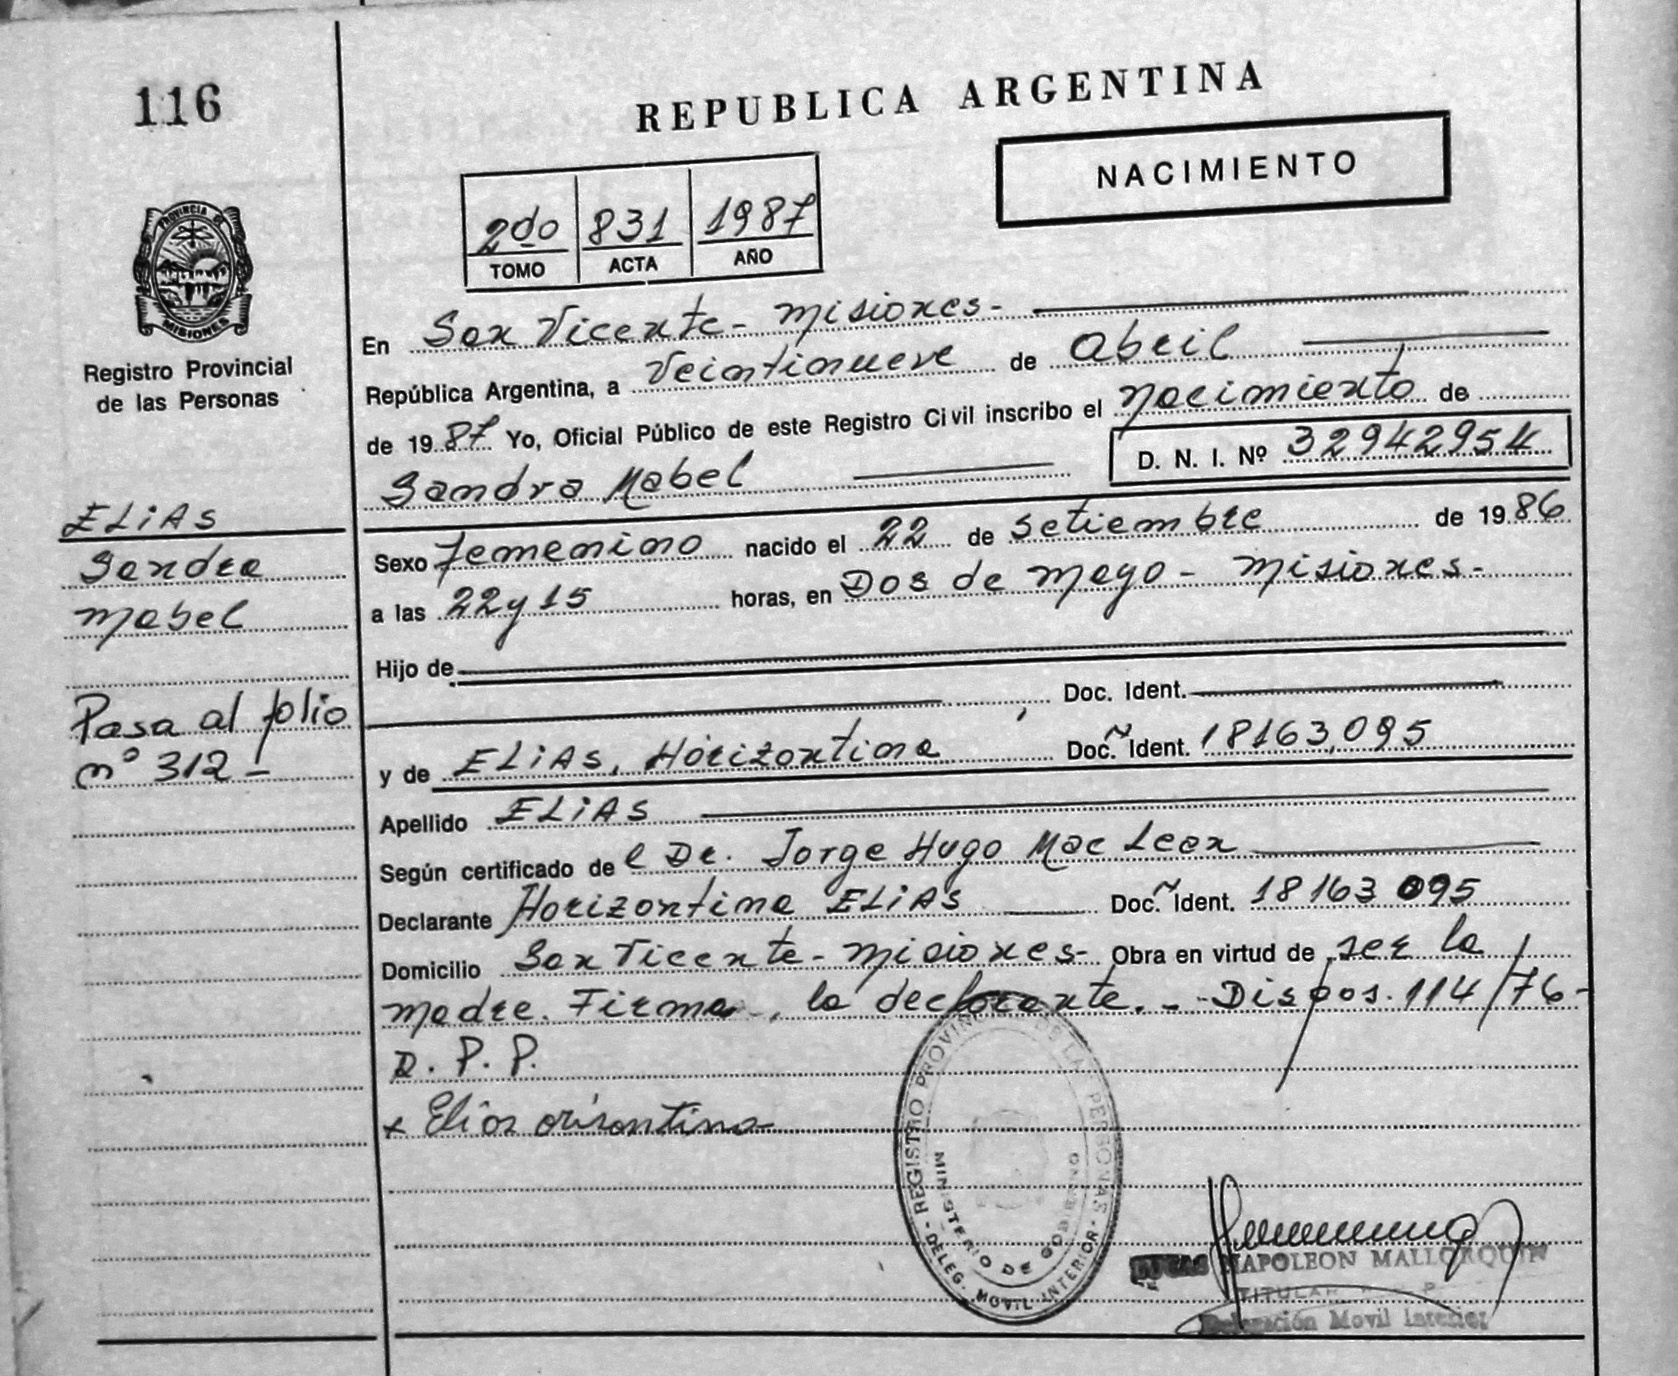 116
REPUBLICA ARGENTINA
NACIMIENTO
2do 831 1987
TOMO ACTA AÑO
PROVINCIA DE
MISIONES
Registro Provincial
de las Personas
ELiAS
Sandra
Mabel
Pasa al folio
nº 312-
En San Vicente - Misiones -
República Argentina, a Veintinueve de Abril
de 1987 Yo, Oficial Público de este Registro Civil inscribo el Nacimiento de
Sandra Mabel D. N. I. Nº 32942954
Sexo Femenino nacido el 22 de Setiembre de 1986
a las 22 y 15 horas, en Dos de Mayo - Misiones -
Hijo de
Doc. Ident.
y de ELiAS, Horizontina Doc. Ident. 18163,095
Apellido ELiAS
Según certificado de l Dr. Jorge Hugo Mac Lean
Declarante Horizontina ELiAS Doc. Ident. 18163 095
Domicilio San Vicente - Misiones - Obra en virtud de ser la
madre. Firma, la declarante. - Dispos. 114/76 -
D. P. P.
x Elias orisontina
REGISTRO PROVINCIAL DE LAS PERSONAS
MINISTERIO DE GOBIERNO
- DELEG. MOVIL INTERIOR -
NAPOLEON MALLORQUIN
TITULAR
Delegación Movil Interior